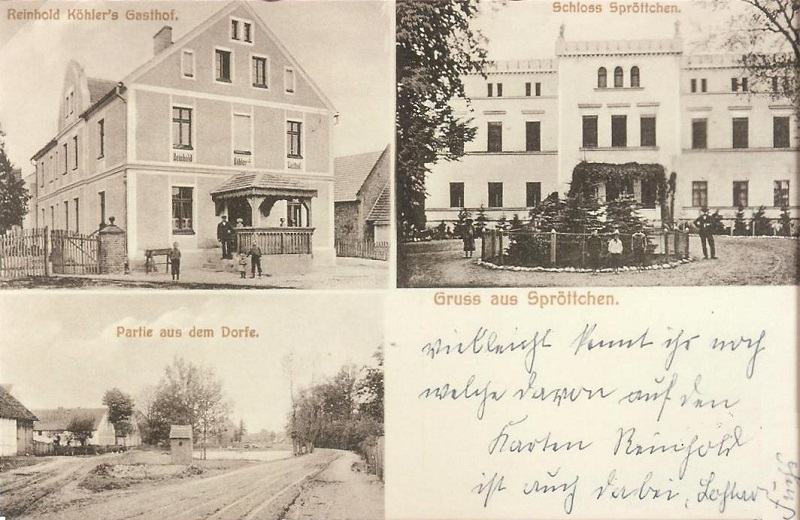 Reinhold Köhler's Gasthof.
Schloss Spröttchen.
Reinhold Köhler's Gasthof
Partie aus dem Dorfe.
Gruss aus Spröttchen.
vielleicht kennt ihr noch
welche davon auf den
Karten Reinhold
ist auch dabei, Lothar